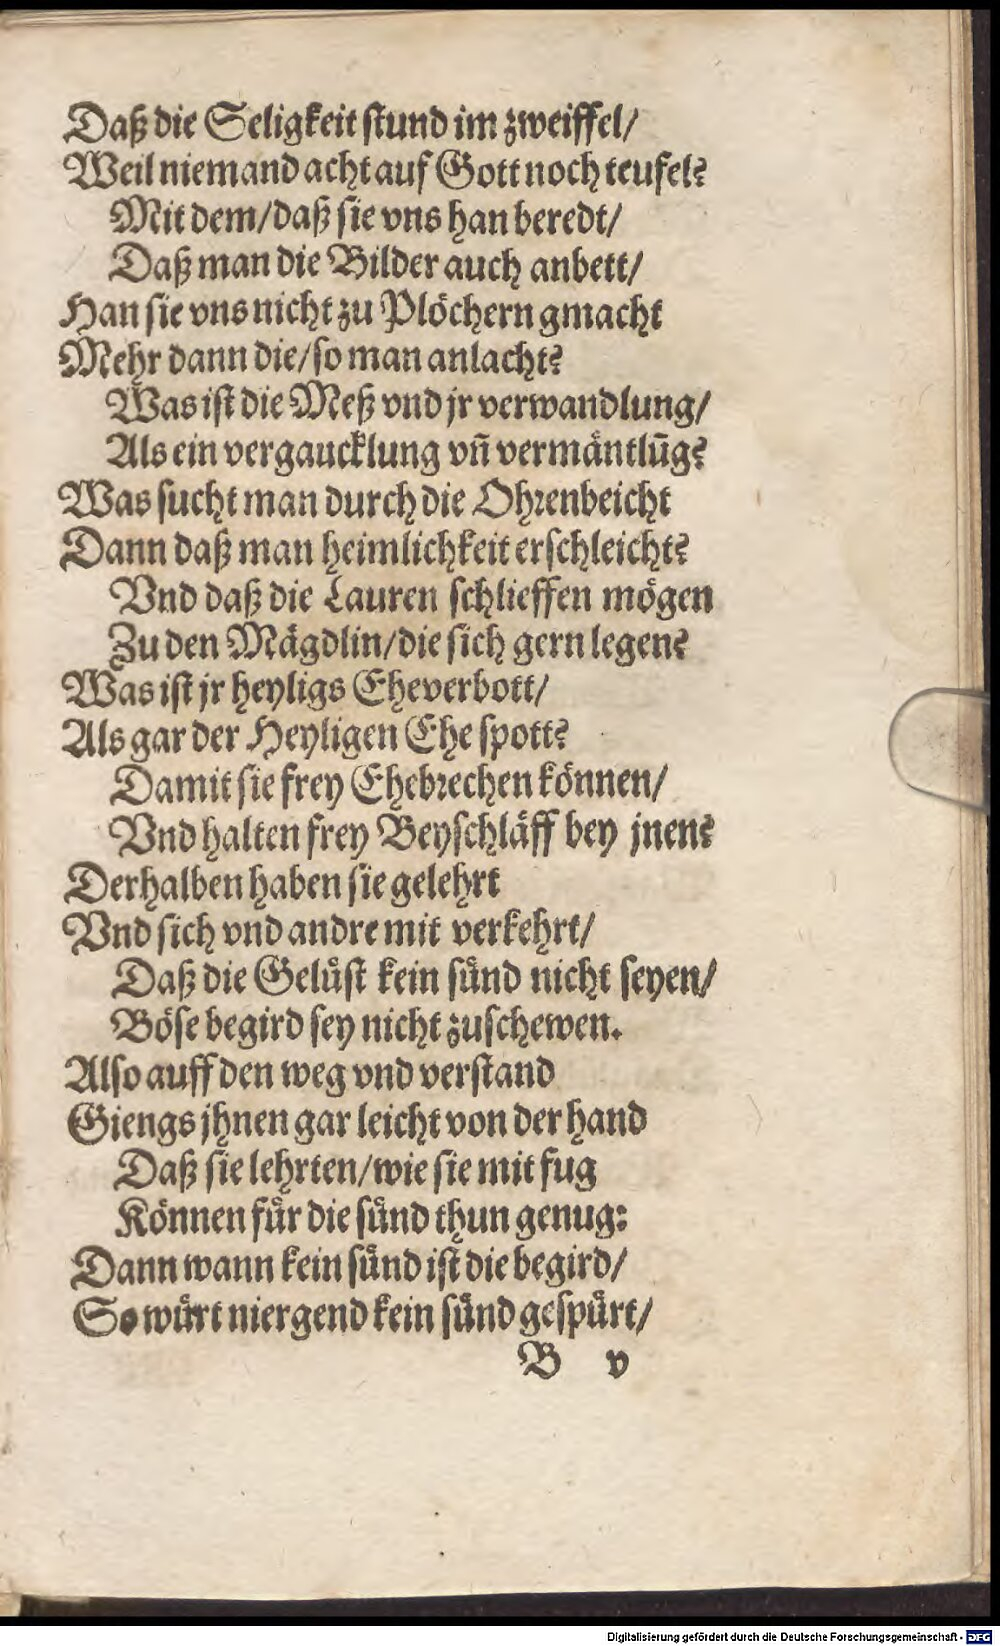 Daß die Seligkeit stund im zweiffel/
Weil niemand acht auf Gott noch teufel?
Mit dem/daß sie vns han beredt/
Daß man die Bilder auch anbett/
Han sie vns nicht zu Plöchern gmacht
Mehr dann die/so man anlacht?
Was ist die Meß vnd jr verwandlung/
Als ein vergaucklung vn̄ vermäntlūg?
Was sucht man durch die Ohrenbeicht
Dann daß man heimlichkeit erschleicht?
Vnd daß die Lauren schlieffen mögen
Zu den Mägdlin/die sich gern legen?
Was ist jr heyligs Eheverbott/
Als gar der Heyligen Ehe spott?
Damit sie frey Ehebrechen können/
Vnd halten frey Beyschläff bey jnen?
Derhalben haben sie gelehrt
Vnd sich vnd andre mit verkehrt/
Daß die Gelüst kein sünd nicht seyen/
Böse begird sey nicht zuschewen.
Also auff den weg vnd verstand
Giengs jhnen gar leicht von der hand
Daß sie lehrten/wie sie mit fug
Können für die sünd thun genug:
Dann wann kein sünd ist die begird/
So würt niergend kein sünd gespürt/
B v
Digitalisierung gefördert durch die Deutsche Forschungsgemeinschaft - DFG